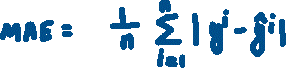 MAE = 1/n Σ_{i=1}^{n} |y^i - ŷ^i|